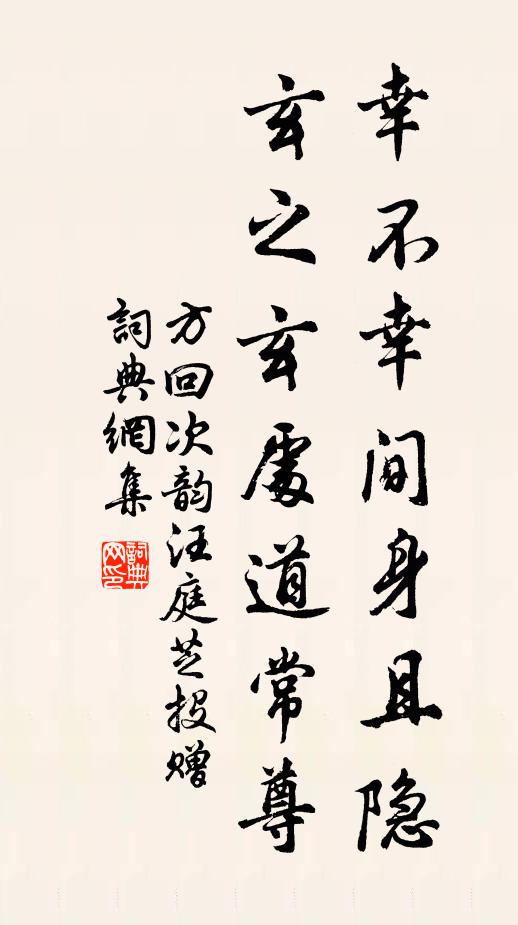 幸不幸间身且隐
玄之玄處道常尊
方回次韵汪庭芝投赠
詞典網集
詞典网印